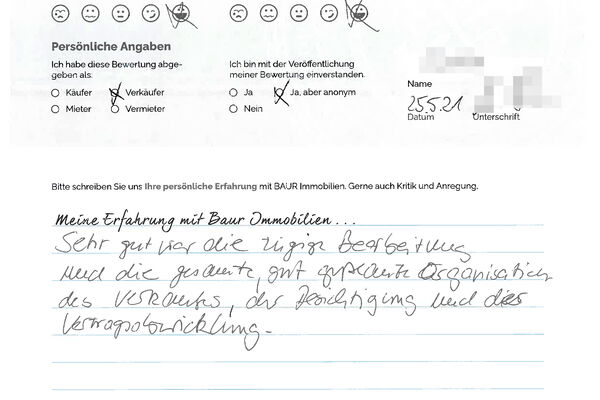 Persönliche Angaben
Ich habe diese Bewertung abge-
geben als:
Käufer
Verkäufer
Mieter
Vermieter
Ich bin mit der Veröffentlichung
meiner Bewertung einverstanden.
Ja
Ja, aber anonym
Nein
Name
25.5.21
Datum
Unterschrift
Bitte schreiben Sie uns Ihre persönliche Erfahrung mit BAUR Immobilien. Gerne auch Kritik und Anregung.
Meine Erfahrung mit Baur Immobilien...
Sehr gut war die zügige Bearbeitung
und die gesamte, gut geplante Organisation
des Verkaufes, der Besichtigung und der
Vertragsabwicklung.